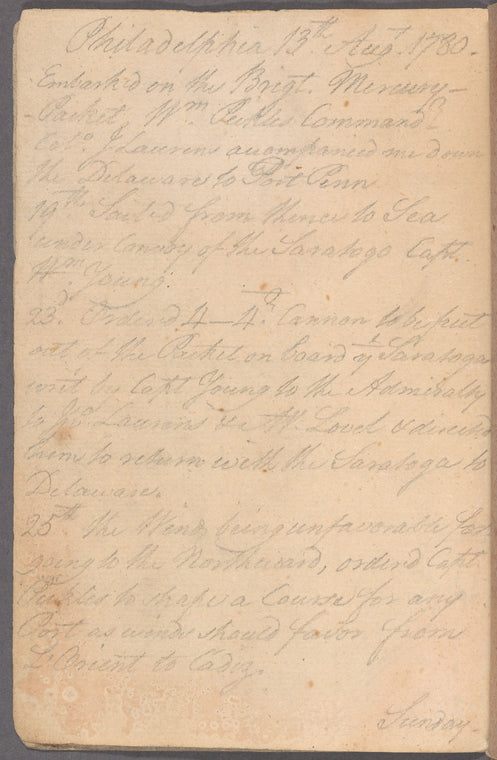 Philadelphia 13th Augt. 1780.
Embark'd on the Brigt. Mercury-
-Packet, Wm. Pickles Commandr.
Colo. J Laurens accompanied me down
the Delaware to Port Penn
19th Sailed from thence to Sea
under Convoy of the Saratoga Capt.
Young.
23d. Ordered 4-4 Cannon to be put
out of the Packet on board ye Saratoga
by Capt Young to the Admiralty
to Jno. Laurens & Lovel & directed
him to return with the Saratoga to
Delaware.
25th the Wind being unfavorable for
going to the Northward, orderd Capt
Pickles to shape a Course for any
Port as winds should favor from
L'Orient to Cadiz.
Sunday